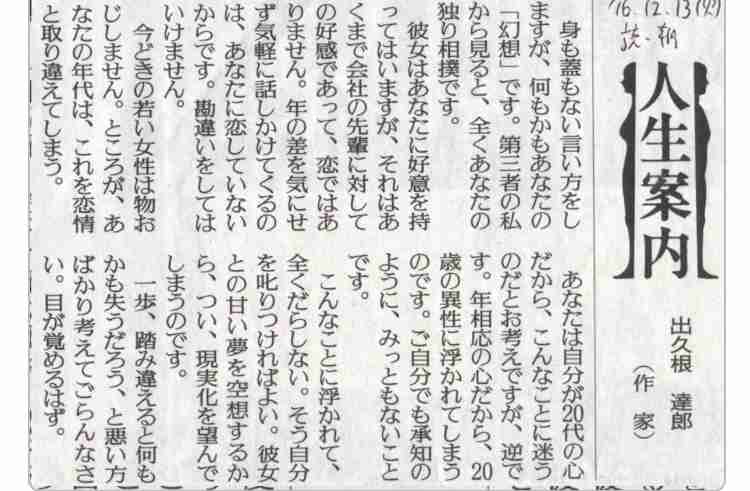 '16.12.13(火)
読・朝
人生案内
出久根 達郎
（作 家）
身も蓋もない言い方をし
ますが、何もかもあなたの
「幻想」です。第三者の私
から見ると、全くあなたの
独り相撲です。
彼女はあなたに好意を持
ってはいますが、それはあ
くまで会社の先輩に対して
の好感であって、恋ではあ
りません。年の差を気にせ
ず気軽に話しかけてくるの
は、あなたに恋していない
からです。勘違いをしては
いけません。
今どきの若い女性は物お
じしません。ところが、あ
なたの年代は、これを恋情
と取り違えてしまう。
あなたは自分が20代の心
だから、こんなことに迷う
のだとお考えですが、逆で
す。年相応の心だから、20
歳の異性に浮かれてしまう
のです。ご自分でも承知の
ように、みっともないこと
です。
こんなことに浮かれて、
全くだらしない。そう自分
を叱りつければよい。彼女
との甘い夢を空想するか
ら、つい、現実化を望んで
しまうのです。
一歩、踏み違えると何も
かも失うだろう、と悪い方
ばかり考えてごらんなさ
い。目が覚めるはず。